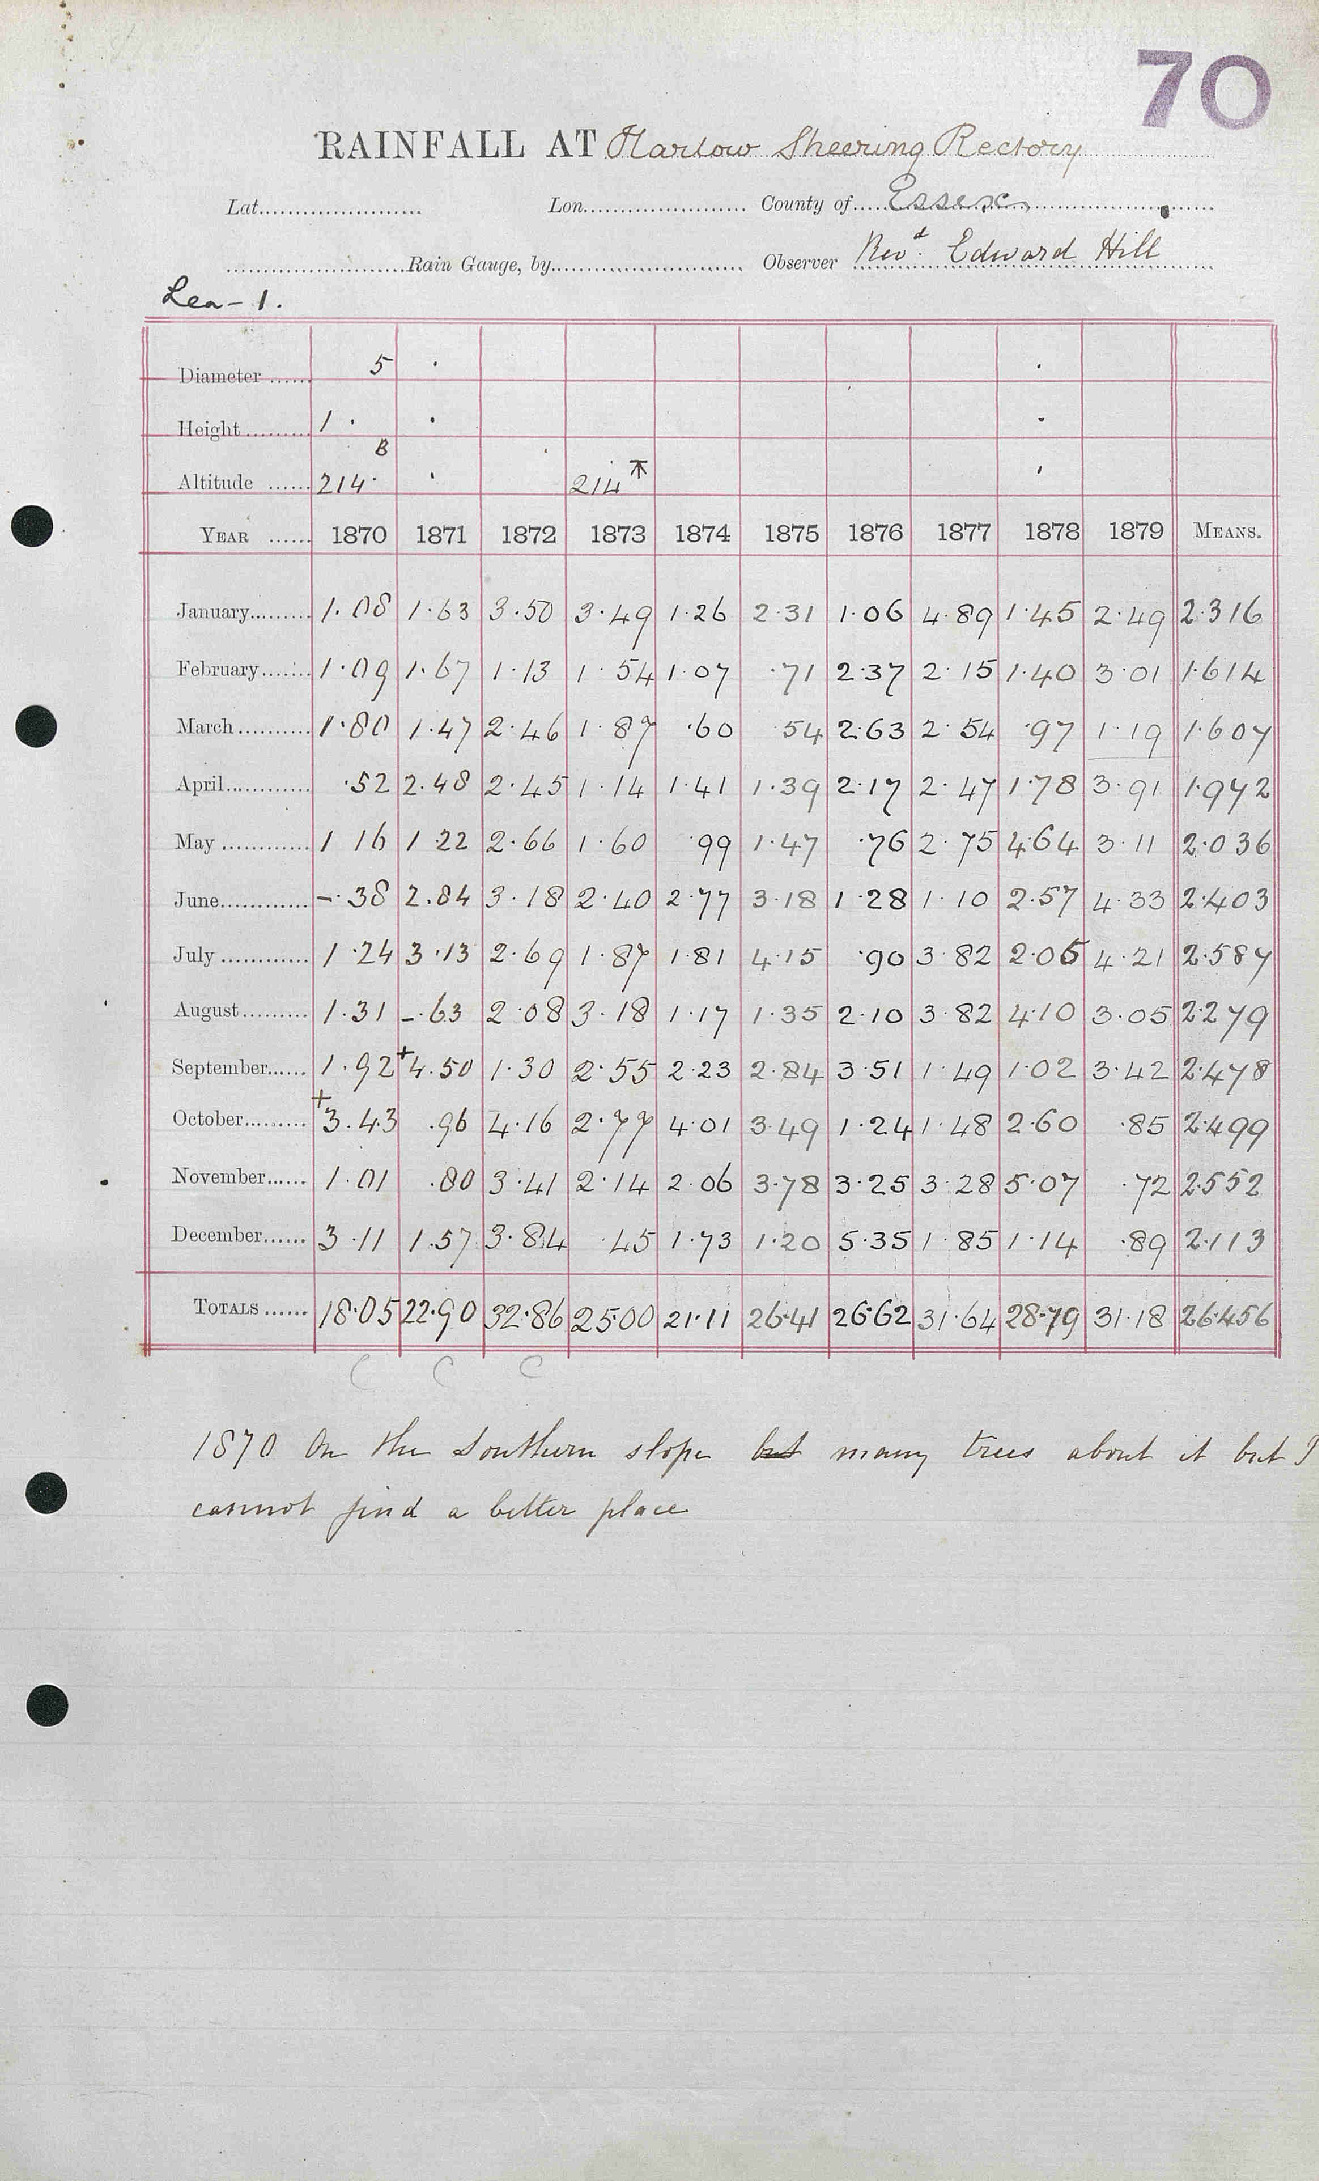 70
RAINFALL AT Harlow Sheering Rectory
Lat. Lon. County of Essex
Rain Gauge, by Observer Revd. Edward Hill
Lea-1.
Diameter 5 · ·
Height 1 · · ·
B
Altitude 214· · 214 ·
YEAR 1870 1871 1872 1873 1874 1875 1876 1877 1878 1879 MEANS.
January 1.08 1.63 3.50 3.49 1.26 2.31 1.06 4.89 1.45 2.49 2.316
February 1.09 1.67 1.13 1.54 1.07 .71 2.37 2.15 1.40 3.01 1.614
March 1.80 1.47 2.46 1.87 .60 .54 2.63 2.54 .97 1.19 1.607
April .52 2.48 2.45 1.14 1.41 1.39 2.17 2.47 1.78 3.91 1.972
May 1.16 1.22 2.66 1.60 .99 1.47 .76 2.75 4.64 3.11 2.036
June -.38 2.84 3.18 2.40 2.77 3.18 1.28 1.10 2.57 4.33 2.403
July 1.24 3.13 2.69 1.87 1.81 4.15 .90 3.82 2.05 4.21 2.587
August 1.31 -.63 2.08 3.18 1.17 1.35 2.10 3.82 4.10 3.05 2.279
September 1.92 +4.50 1.30 2.55 2.23 2.84 3.51 1.49 1.02 3.42 2.478
October +3.43 .96 4.16 2.77 4.01 3.49 1.24 1.48 2.60 .85 2.499
November 1.01 .80 3.41 2.14 2.06 3.78 3.25 3.28 5.07 .72 2.552
December 3.11 1.57 3.84 .45 1.73 1.20 5.35 1.85 1.14 .89 2.113
TOTALS 18.05 22.90 32.86 25.00 21.11 26.41 26.62 31.64 28.79 31.18 26.456
C C C
1870 On the Southern slope but many trees about it but I
cannot find a better place